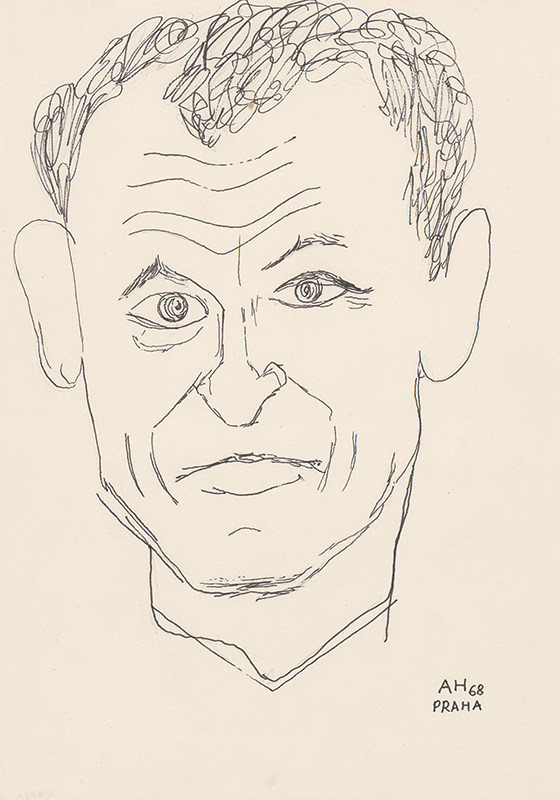 AH 68
PRAHA